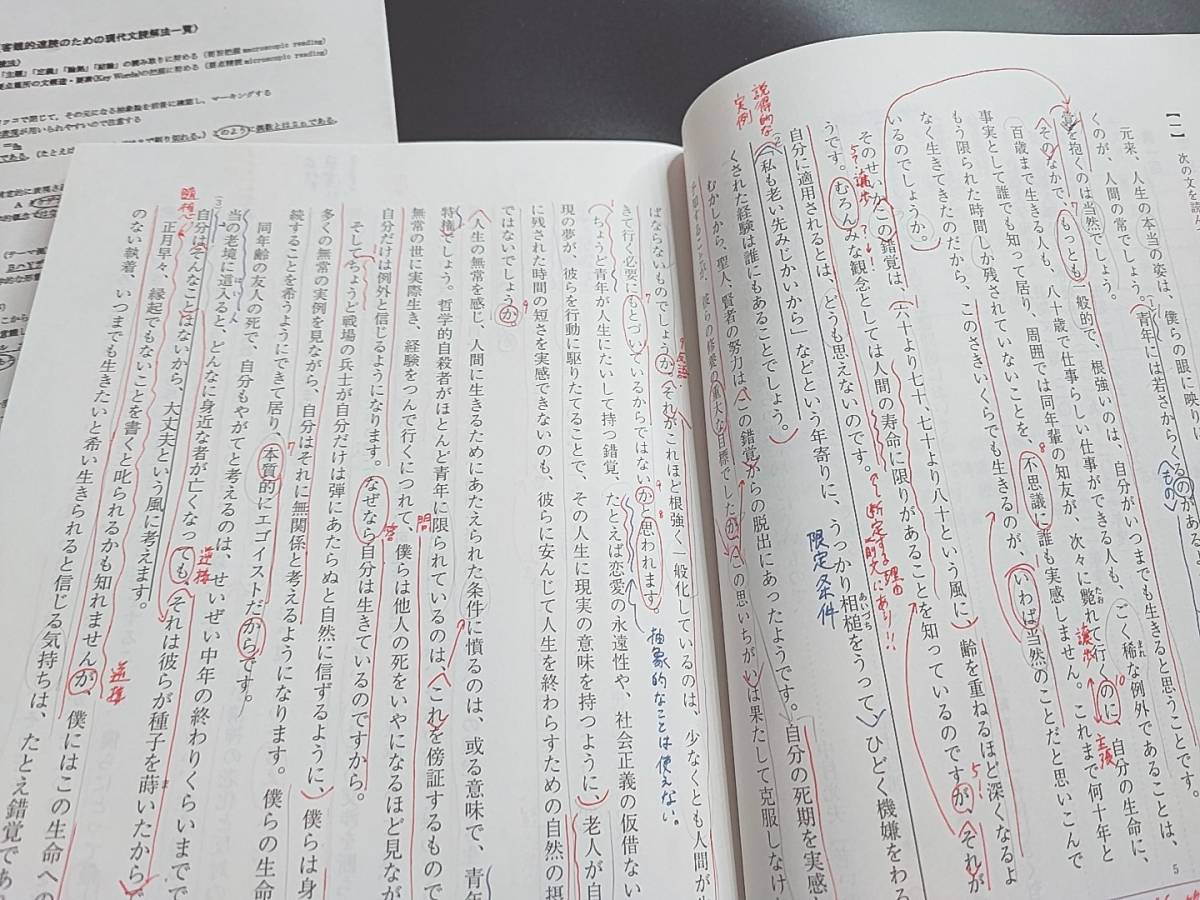 客観的速読のための現代文読解法一覧〉
「主題」「定義」「論拠」「結論」の読み取りに努める(要旨把握macroscopic reading)
要点箇所の文構造・要素(Key Words)の把握に努める(要点精読microscopic reading)
カッコで閉じて、その元になる抽象論を前後に確認し、マーキングする
【一】 次の文を読
元来、人生の本当の姿は、僕らの眼に映りに
くのが、人間の常でしょう。青年には若さからくるのがある
(もの)
覚を抱くのは当然でしょう。
そのなかで、もっとも一般的で、根強いのは、自分がいつまでも生きると思うことです。
百歳まで生きる人も、八十歳で仕事らしい仕事ができる人も、ごく稀な例外であることは、
まれ
事実として誰でも知って居り、周囲では同年輩の知友が、次々に斃れて行くのに、自分の生命に、
たお
譲歩
主張
もう限られた時間しか残されていないことを、不思議に誰も実感しません。これまで何十年と
なく生きてきたのだから、このさきいくらでも生きるのが、いわば当然のことだと思いこんで
いるのでしょうか。
そのせいかこの錯覚は、六十より七十、七十より八十という風に、齢を重ねるほど深くなるよ
譲歩
うです。むろんみな観念としては人間の寿命に限りがあることを知っているのですが、それが
断定する理由
自分に適用されるとは、どうも思えないのです。
説得的な
実例
「私も老い先みじかいから」などという年寄りに、うっかり相槌をうって、ひどく機嫌をわる
あいづち
限定条件
くされた経験は誰にもあることでしょう。
むかしから、聖人、賢者の努力は、この錯覚からの脱出にあったようです。自分の死期を実感
予知することが、彼らの修養の重大な目標でしたが、この思いちがいは果たして克服しなけ
5
ばならないものでしょうか。それがこれほど根強く一般化しているのは、少なくとも人間が
きて行く必要にもとづいているからではないかと思われます。
抽象的なことは使えない。
ちょうど青年が人生にたいして持つ錯覚、たとえば恋愛の永遠性や、社会正義の仮借ない
現の夢が、彼らを行動に駆りたてることで、その人生に現実の意味を持つように、老人が自
に残された時間の短さを実感できないのも、彼らに安んじて人生を終わらすための自然の摂
ではないでしょうか。
人生の無常を感じ、人間に生きるためにあたえられた条件に憤るのは、或る意味で、青年
特権でしょう。哲学的自殺者がほとんど青年に限られているのは、これを傍証するもので
問
無常の世に実際生き、経験をつんで行くにつれて、僕らは他人の死をいやになるほど見なが
答
自分だけは例外と信じるようになります。なぜなら自分は生きているのですから。
そしてちょうど戦場の兵士が自分だけは弾にあたらぬと自然に信ずるように、僕らは身
多くの無常の実例を見ながら、自分はそれに無関係と考えるようになります。僕らの生命
続することを希うようにできて居り、本質的にエゴイストだからです。
同年齢の友人の死で、自分もやがてと考えるのは、せいぜい中年の終わりくらいまでで
当の老境に這入ると、どんなに身近な者が亡くなっても、それは彼らが種子を蒔いたから
はい
逆接
自分はそんなことはないから、大丈夫という風に考えます。
正月早々、縁起でもないことを書くと叱られるかも知れませんが、僕にはこの生命への
逆接
のない執着、いつまでも生きたいと希い生きられると信じる気持ちは、たとえ錯覚であ